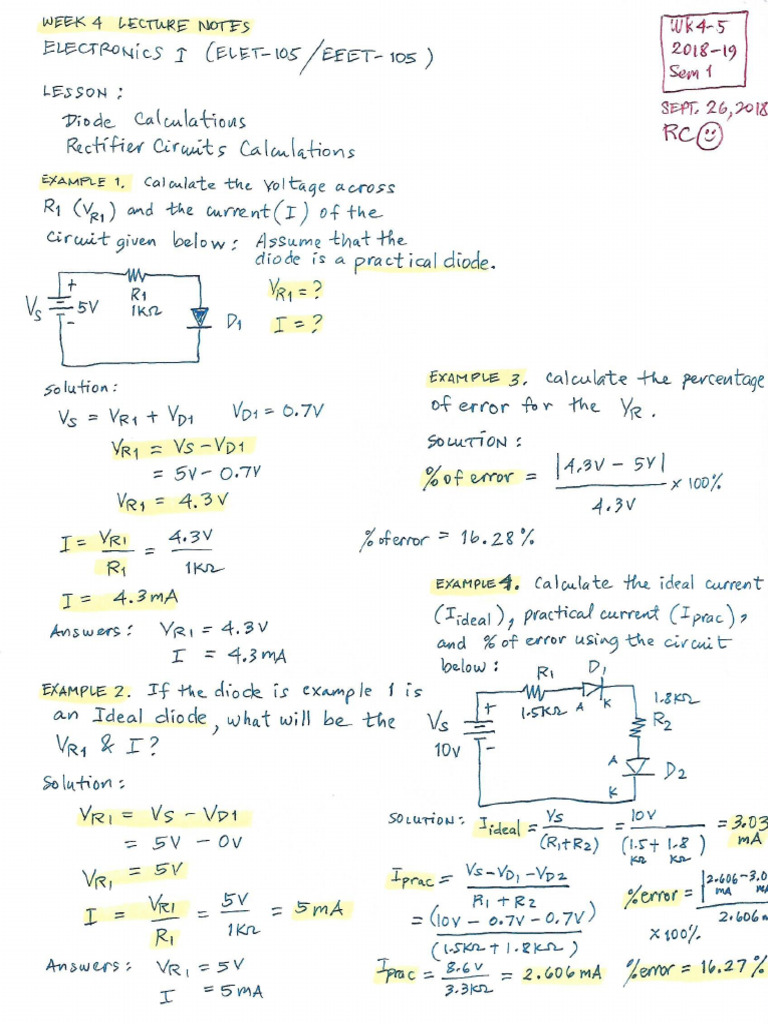 WEEK 4 LECTURE NOTES
ELECTRONICS I (ELET-105/EEET-105)
WK4-5
2018-19
Sem 1
SEPT. 26, 2018
RC
LESSON :
Diode Calculations
Rectifier Circuits Calculations
EXAMPLE 1. Calculate the voltage across
R1 (VR1) and the current (I) of the
circuit given below : Assume that the
diode is a practical diode.
VS
+
5V
-
R1
1KΩ
D1
VR1 = ?
I = ?
Solution :
VS = VR1 + VD1 VD1 = 0.7V
VR1 = VS - VD1
= 5V - 0.7V
VR1 = 4.3V
I = VR1 / R1 = 4.3V / 1KΩ
I = 4.3mA
Answers : VR1 = 4.3V
I = 4.3mA
EXAMPLE 2. If the diode is example 1 is
an Ideal diode, what will be the
VR1 & I ?
Solution :
VR1 = VS - VD1
= 5V - 0V
VR1 = 5V
I = VR1 / R1 = 5V / 1KΩ = 5mA
Answers : VR1 = 5V
I = 5mA
EXAMPLE 3. calculate the percentage
of error for the VR.
SOLUTION :
% of error = |4.3V - 5V| / 4.3V x 100%
% of error = 16.28%
EXAMPLE 4. Calculate the ideal current
(Iideal), practical current (Iprac),
and % of error using the circuit
below :
VS
10V
+
-
R1
1.5KΩ
D1
A K
1.8KΩ
R2
A
D2
K
SOLUTION : Iideal = VS / (R1+R2) = 10V / (1.5KΩ + 1.8KΩ) = 3.03 mA
Iprac = VS - VD1 - VD2 / R1 + R2
= (10V - 0.7V - 0.7V) / (1.5KΩ + 1.8KΩ)
Iprac = 8.6V / 3.3KΩ = 2.606mA
% error = |2.606mA - 3.0 / 2.606m
x 100%
% error = 16.27%